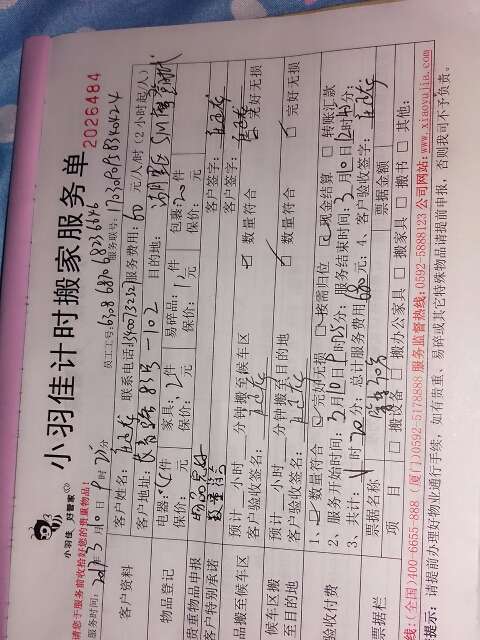 小羽佳 好管家
小羽佳计时搬家服务单 2026484
请您于服务前收拾好您的贵重物品!
员工工号: 6308 6870 8236 6846
服务时间: 2017年3月10日9时25分
服务联号:
客户资料 客户姓名: 联系电话: 服务费用: 60 元/人/时 (2小时起/人)
客户地址: 83号-102 目的地: SM
物品登记 电器: 件 家具: 2件 易碎品: 1件 包裹: 件
保价: 元 保价: 元 保价: 元 保价:
贵重物品申报 物品完好 客户签字:
客户特别承诺 数量符合 客户签字:
品搬至候车区 预计 小时 分钟搬至候车区 数量符合 完好无损
客户验收签名:
候车区搬至目的地 预计 小时 分钟搬至目的地 数量符合 完好无损
客户验收签名:
验收付费 1、数量符合 完好无损 按需归位 现金结算 转账汇款
2、服务开始时间: 3月10日9时25分; 服务结束时间: 3月10日12时45分;
3、共计: 时20分; 总计服务费用: 680元; 4、客户验收签字:
票据栏 票据名称 票据金额
项目 搬设备 搬办公家具 搬家具 搬书 其他:
线:(全国)400-6655-888 (厦门)0592-5178888 服务监督热线:0592-5888123 公司网站:www.xiaoyujia.com
提示: 请提前办理好物业通行手续, 如有贵重、易碎或其它特殊物品请提前申报, 否则我司不予负责。